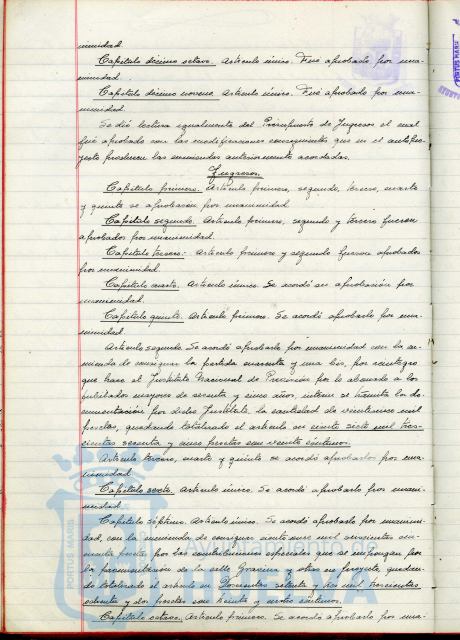 nimidad.
Capítulo décimo octavo. Artículo único. Fué aprobado por una-
nimidad.
Capítulo décimo noveno. Artículo único. Fué aprobado por una-
nimidad.
Se dió lectura igualmente del Presupuesto de Ingresos el cual
fué aprobado con las modificaciones consiguientes que en el antepro-
yecto producen las enmiendas anteriormente acordadas.
Ingresos.
Capítulo primero. Artículo primero, segundo, tercero, cuarto
y quinto se aprobación por unanimidad
Capítulo segundo. Artículo primero, segundo y tercero fueron
aprobados por unanimidad.
Capítulo tercero.- Artículo primero y segundo fueron aprobados
por unanimidad.
Capítulo cuarto. Artículo único. Se acordó su aprobación por
unanimidad.
Capítulo quinto. Artículo primero. Se acordó aprobarlo por una-
nimidad.
Artículo segundo. Se acordó aprobarlo por unanimidad con la en-
mienda de consignar la partida cuarenta y una bis, por reintegro
que hace el Instituto Nacional de Previsión por lo abonado a los
jubilados mayores de sesenta y cinco años, interin se tramita la do-
cumentación por dicho Instituto, la cantidad de veintenueve mil
pesetas, quedando totalizado el artículo en siete mil tres-
cientas sesenta y cinco pesetas con veinte céntimos.
Artículo tercero, cuarto y quinto se acordó aprobarlos por una-
nimidad
Capítulo sexto. Artículo único. Se acordó aprobarlo por unani-
midad.
Capítulo séptimo. Artículo único. Se acordó aprobarlo por unanimi-
dad, con la enmienda de consignar nueve mil
pesetas por las contribuciones especiales que se impongan por
la pavimentación de la calle Gravina y otras en proyecto, quedan-
do totalizado el artículo en Doscientas setenta y mil trescientas
y dos pesetas con treinta y céntimos.
Capítulo octavo. Artículo primero. Se acordó aprobarlo por una-
PORTUS MARIS